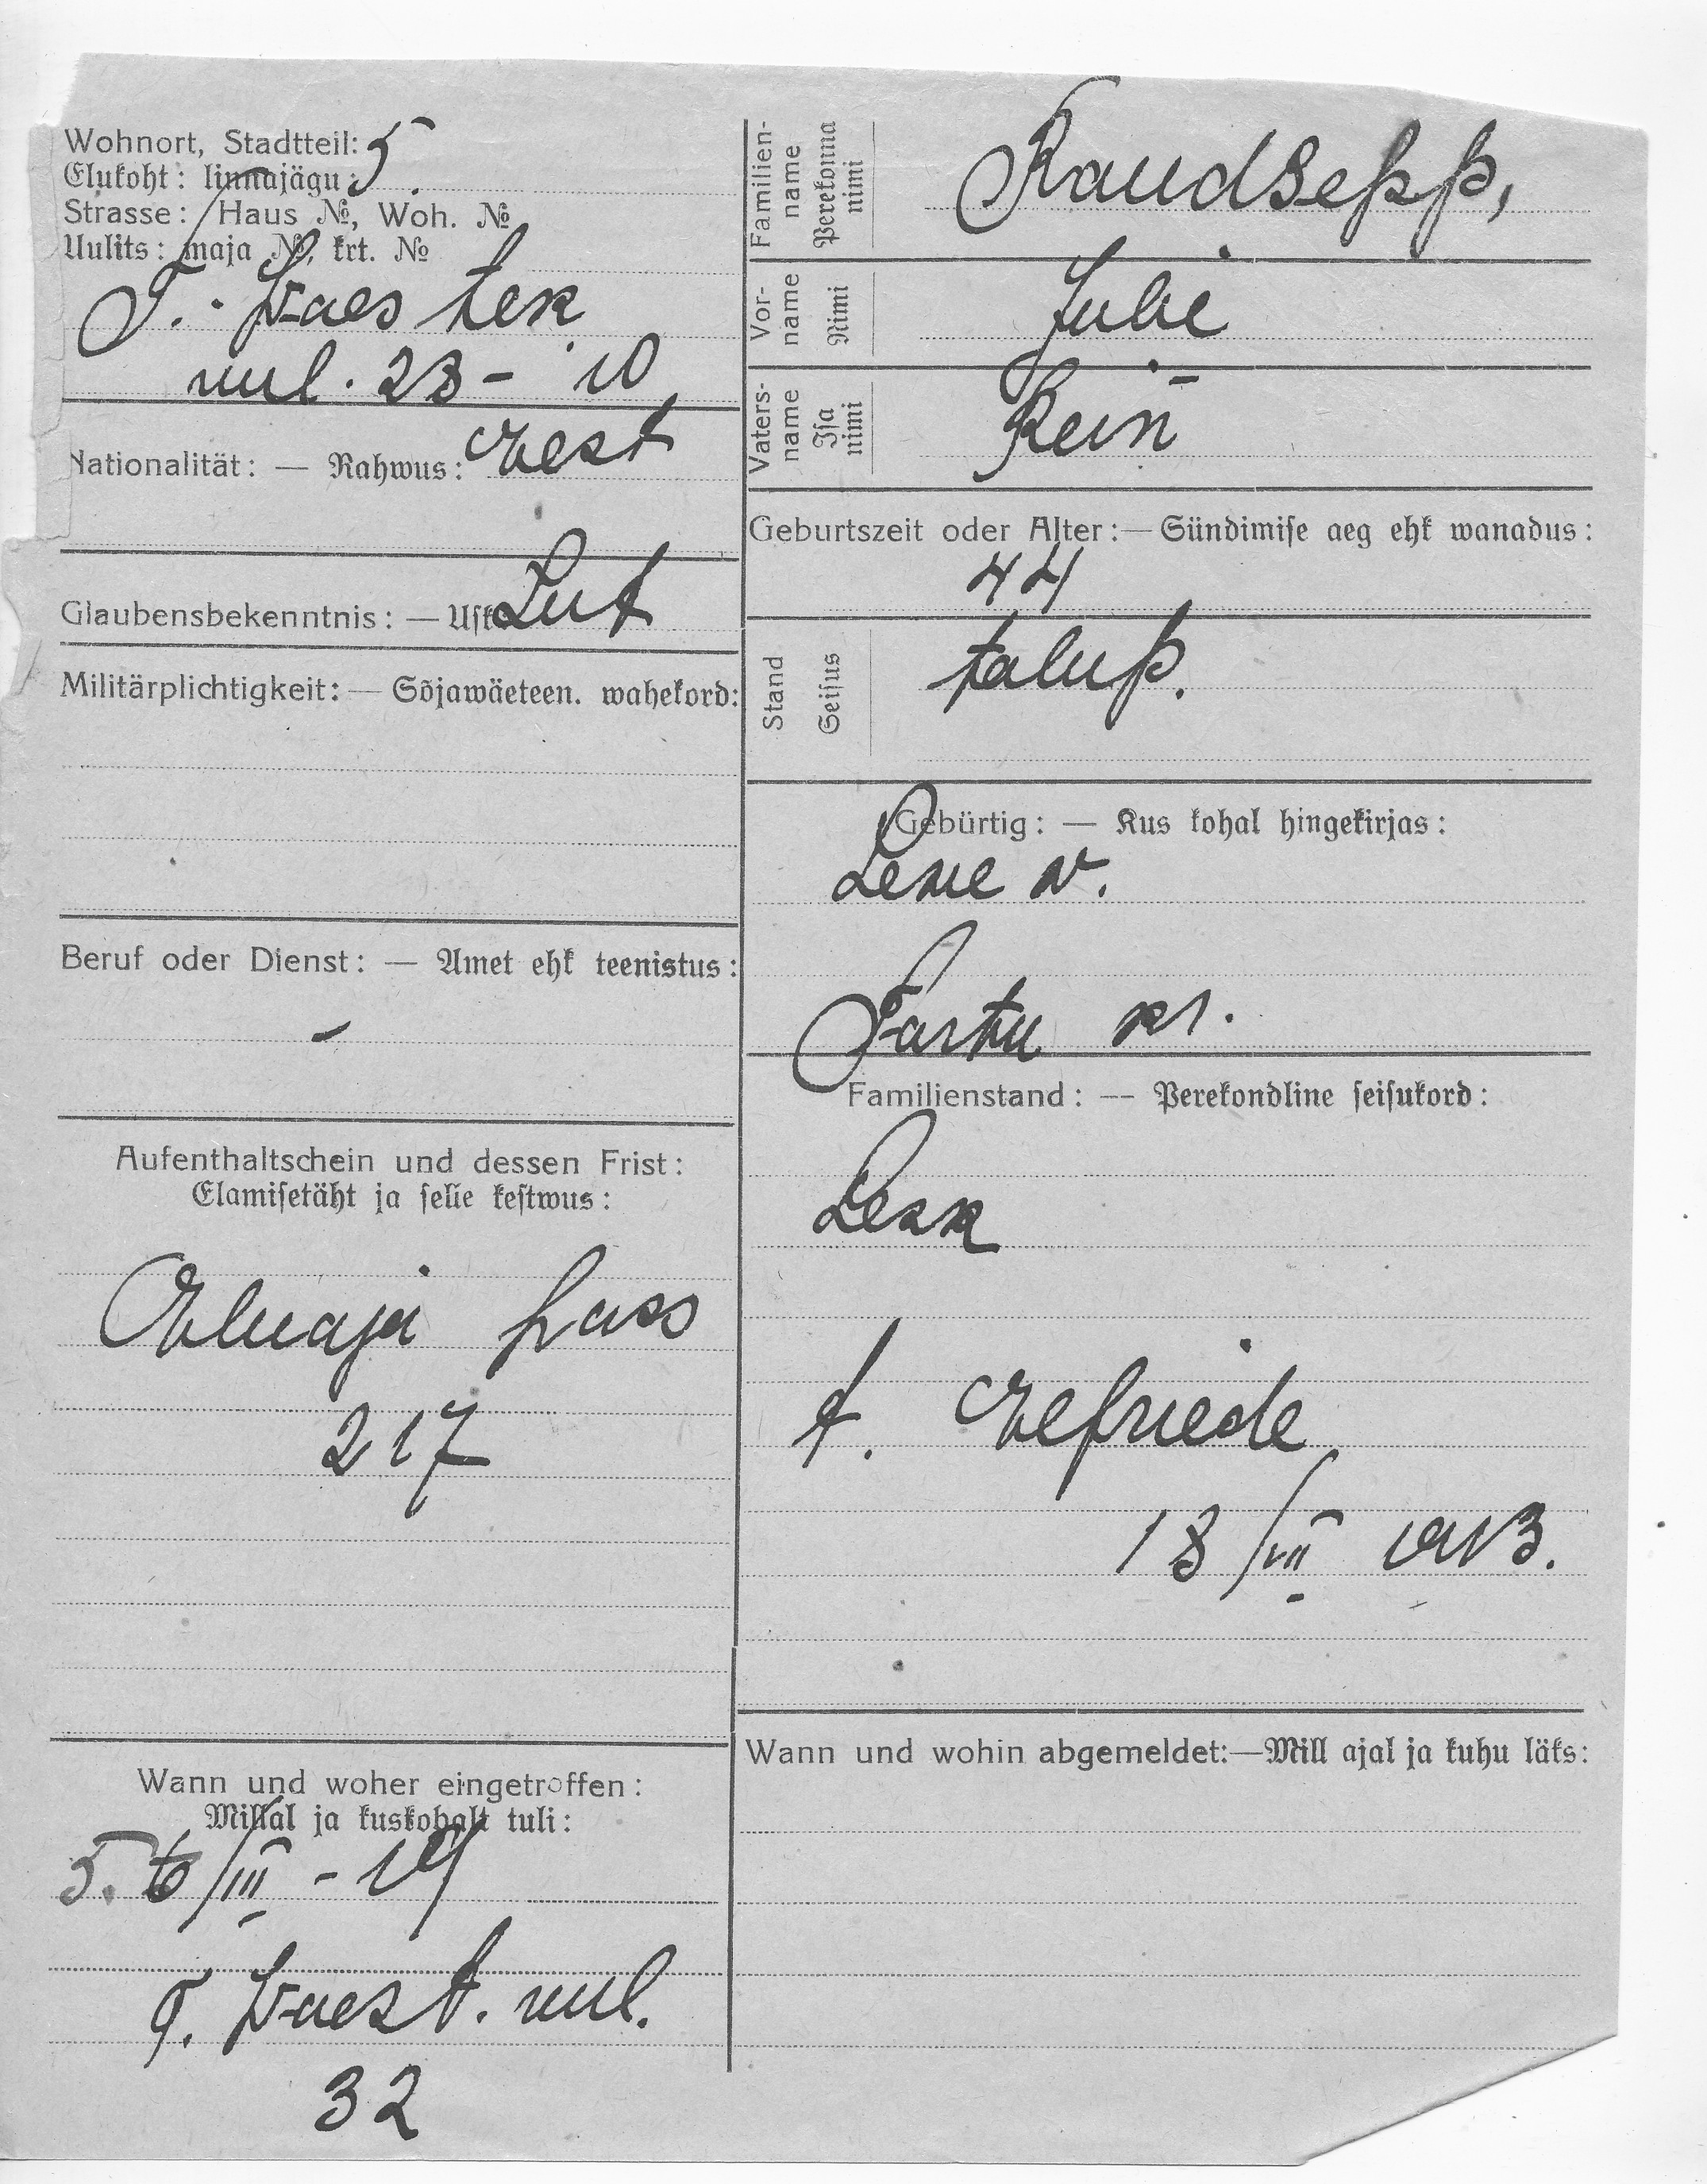 Wohnort, Stadtteil: 5.
Elukoht: linnajägu:
Strasse: Haus №, Woh. №
Uulits: maja №, krt. №
T. Waestek
uul. 28 - 10
Nationalität: — Rahwus: eest
Glaubensbekenntnis: — Usk Lut
Militärplichtigkeit: — Sõjawäeteen. wahekord:
Beruf oder Dienst: — Amet ehk teenistus:
-
Aufenthaltschein und dessen Frist:
Elamisetäht ja selle kestwus:
Eluaja pass
217
Wann und woher eingetroffen:
Millal ja kuskohalt tuli:
5. 6/III - 19
T. Waest. uul.
32
Familien-name
Perekonna nimi
Raudsepp,
Vor-name
Nimi
Julie
Vaters-name
Isa nimi
Rein
Geburtszeit oder Alter: — Sündimise aeg ehk wanadus:
44
Stand
Seisus
talup.
Gebürtig: — Kus kohal hingekirjas:
w.
Tartu kr.
Familienstand: — Perekondline seisukord:
Lesk
t. Elfriede
18/VII 1913.
Wann und wohin abgemeldet: — Mill ajal ja kuhu läks: